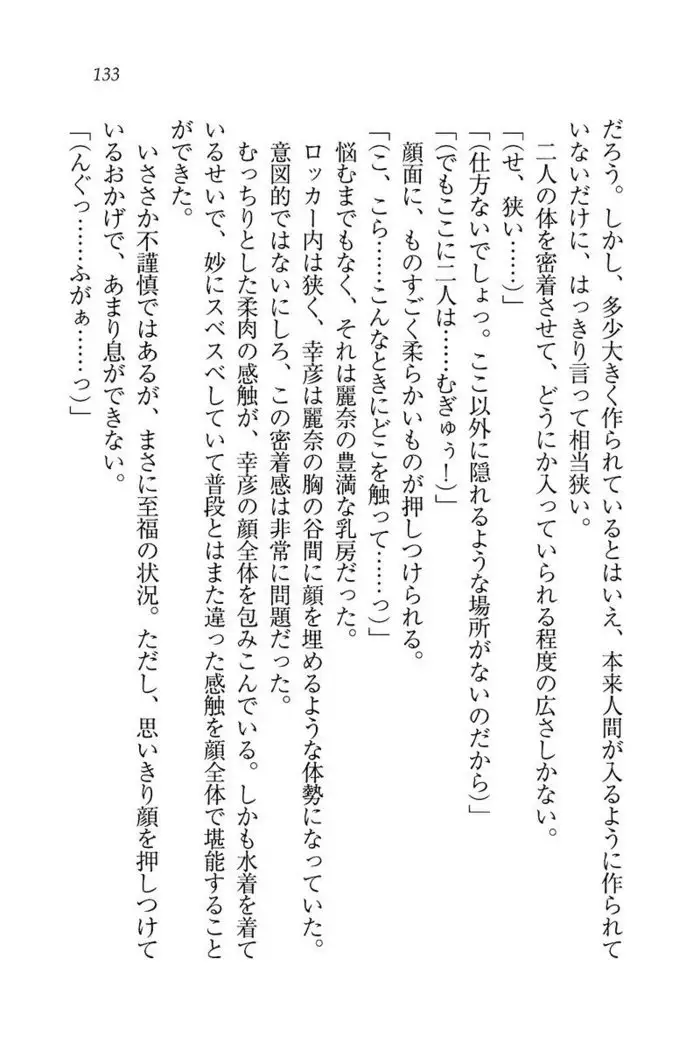 133
だろう。しかし、多少大きく作られているとはいえ、本来人間が入るように作られて
いないだけに、はっきり言って相当狭い。
二人の体を密着させて、どうにか入っていられる程度の広さしかない。
「(せ、狭い……)」
「(仕方ないでしょっ。ここ以外に隠れるような場所がないのだから)」
「(でもここに二人は……むぎゅぅ！)」
顔面に、ものすごく柔らかいものが押しつけられる。
「(こ、こら……こんなときにどこを触って……っ)」
悩むまでもなく、それは麗奈の豊満な乳房だった。
ロッカー内は狭く、幸彦は麗奈の胸の谷間に顔を埋めるような体勢になっていた。
意図的ではないにしろ、この密着感は非常に問題だった。
むっちりとした柔肉の感触が、幸彦の顔全体を包みこんでいる。しかも水着を着て
いるせいで、妙にスベスベしていて普段とはまた違った感触を顔全体で堪能すること
ができた。
いささか不謹慎ではあるが、まさに至福の状況。ただし、思いきり顔を押しつけて
いるおかげで、あまり息ができない。
「(んぐっ……ふがぁ……っ)」